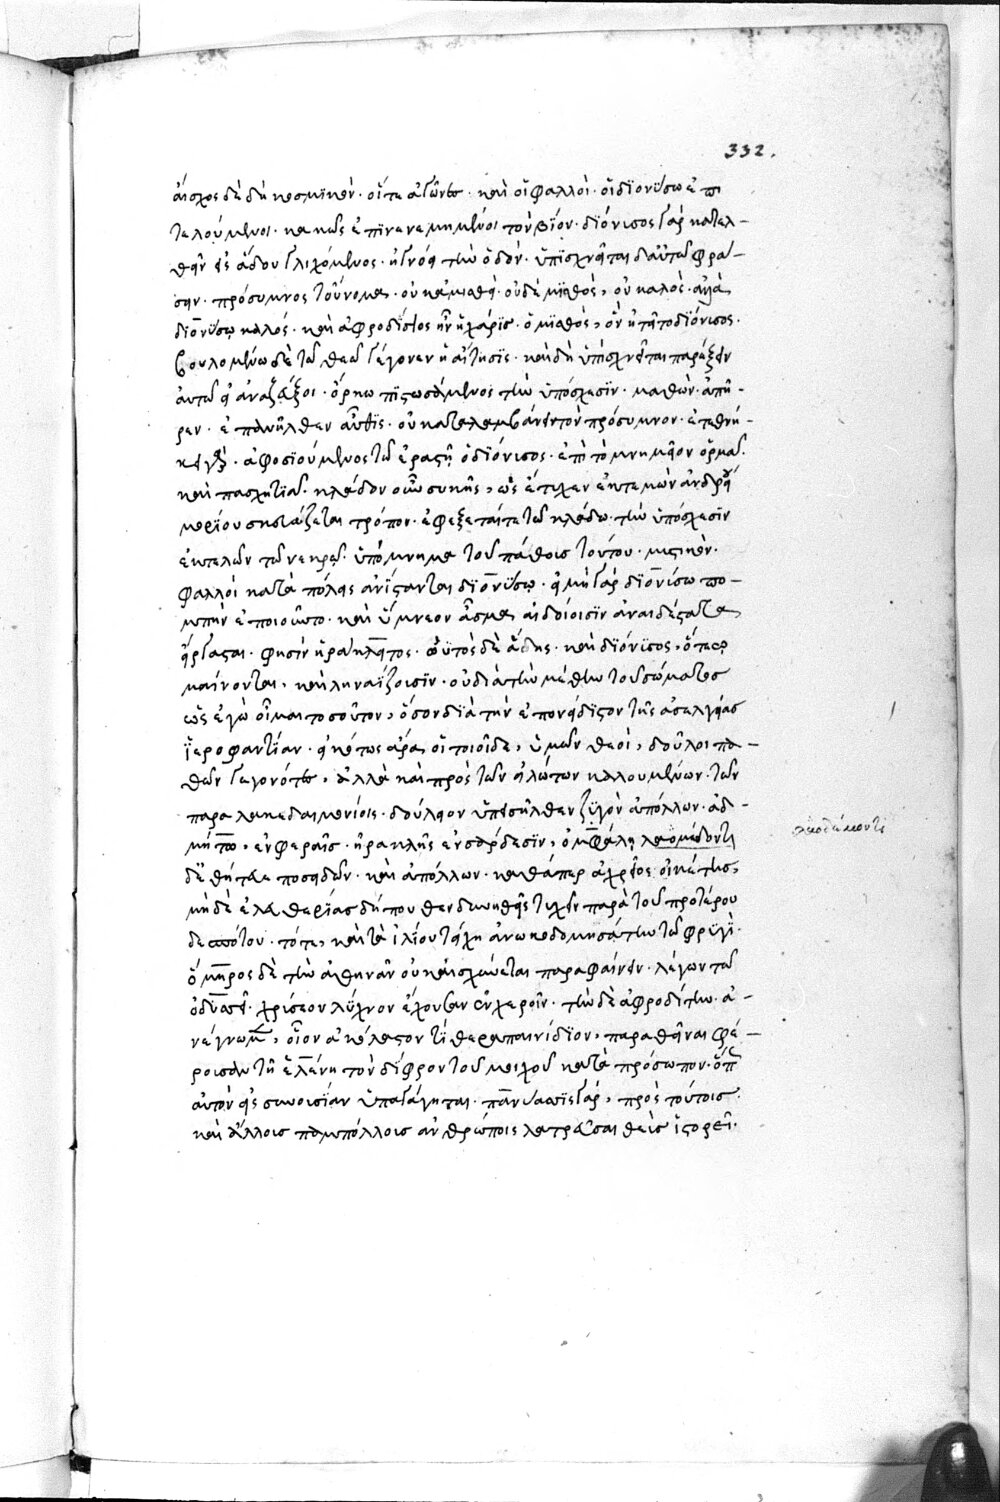 332.
αἶσχος δὲ δὴ κοσμϊκὸν· οἵτε ἀγῶνες· καὶ οἱ φαλλοὶ· οἱ δϊονύσω ἐπι
τελούμενοι· κακῶς ἐπϊνενεμημένοι τὸν βίον· δϊόνισος γὰρ κατελ-
θεῖν εἰς ἅδου γλιχόμενος· ἠγνόει τὴν ὁδόν· ὑπϊσχνεῖται δαὐτῶ φρά-
σειν· πρόσυμνος τοὔνομα· οὐκ ἀμισθὶ· ὁ δὲ μϊσθὸς, οὐ καλὸς· ἀλλὰ
δϊονύσω καλός· καὶ ἀφροδίσιος ἦν ἡ χάρϊς· ὁ μϊσθὸς, ὃν ᾐτεῖτο δϊόνισος·
βουλομένω δὲ τῶ θεῶ γέγονεν ἡ αἴτησϊς· καὶ δὴ ὑπϊσχνεῖται παρέξειν
αὐτῶ εἰ ἀναζεύξοι· ὅρκω πϊστωσάμενος τὴν ὑπόσχεσϊν· μαθὼν ἀπῆ-
ρεν· ἐπανῆλθεν αὖθϊς· οὐ καταλαμβάνει τὸν πρόσυμνον· ἐτεθνή-
κει γὰρ· ἀφοσϊούμενος τῶ ἐραστῆ ὁ δϊόνισος· ἐπὶ τὸ μνημεῖον ὁρμᾶ·
καὶ πασχητϊᾶ· κλάδον οὖν συκῆς, ὡς ἔτυχεν ἐκτεμὼν ἀνδρείου
μορίου σκευάζεται τρόπον· ἐφέζεταί τε τῶ κλάδω· τὴν ὑπόσχεσϊν
ἐκτελῶν τῶ νεκρῶ· ὑπόμνημα τοῦ πάθους τούτου· μυστικὸν·
φαλλοὶ κατὰ πόλεις ἀνίστανται δϊονύσω· εἰ μὴ γὰρ δϊονίσω πο-
μπὴν ἐποιοῦντο· καὶ ὕμνεον ἆσμα αἰδοίοισϊν ἀναιδέστατα
εἴργασται· φησὶν ἡράκλειτος· ωὑτὸς δὲ ἅδης· καὶ δϊόνϊσος, ὅτεω
μαίνονται, καὶ ληναΐζουσϊν· οὐ διὰ τὴν μέθην τοῦ σώματος
ὡς ἐγὼ οἶμαι τοσοῦτον, ὅσον δϊὰ τὴν ἐπονείδϊστον τῆς ἀσελγείας
ϊεροφαντίαν· εἰκότως ἄρα οἱ τοιοίδε, ὑμῶν θεοὶ, δοῦλοι πα-
θῶν γεγονότες, ἀλλὰ καὶ πρὸς τῶν εἱλώτων καλουμένων· τῶν
παρα λακεδαιμονίοις· δούλειον ὑπεισῆλθεν ζυγὸν ἀπόλλων· ἀδ-
μήτω, ἐν φεραῖς· ἡρακλῆς ἐν σάρδεσϊν, ὀμφάλη λαομέδοντι
δ' ἐθήτευε ποσειδῶν· καὶ ἀπόλλων· καθάπερ ἀχρεῖος οἰκέτης,
μηδὲ ἐλευθερίας δήπουθεν δυνηθεὶς τυχεῖν παρὰ τοῦ προτέρου
δεσπότου· τότε, καὶ τὰ ἰλίου τείχη ἀνωκοδομησάτην τῶ φρυγὶ·
ὅμηρος δὲ τὴν ἀθηνᾶν οὐκ αἰσχύνεται παραφαίνειν· λέγων τῶ
ὀδυσσεῖ· χρύσεον λύχνον ἔχουσαν ἐν χεροῖν· τὴν δὲ ἀφροδίτην· ἀ-
νέγνωμεν, οἷον ἀκόλαστόν τι θεραπαινίδϊον, παραθεῖναι φέ-
ρουσαν τῆ ἑλένη τὸν δίφρον τοῦ μοιχοῦ κατὰ πρόσωπον· ὅπως
αὐτὸν εἰς συνουσίαν ὑπαγάγηται· πανύασσϊς γὰρ, πρὸς τούτοις·
καὶ ἄλλοις παμπόλλοις ἀνθρώποις λατρεῦσαι θεοὺς ἱστορεῖ·
λαοδάμοντι